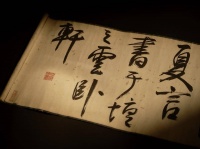 夏言
書于壇
之雲臥
軒